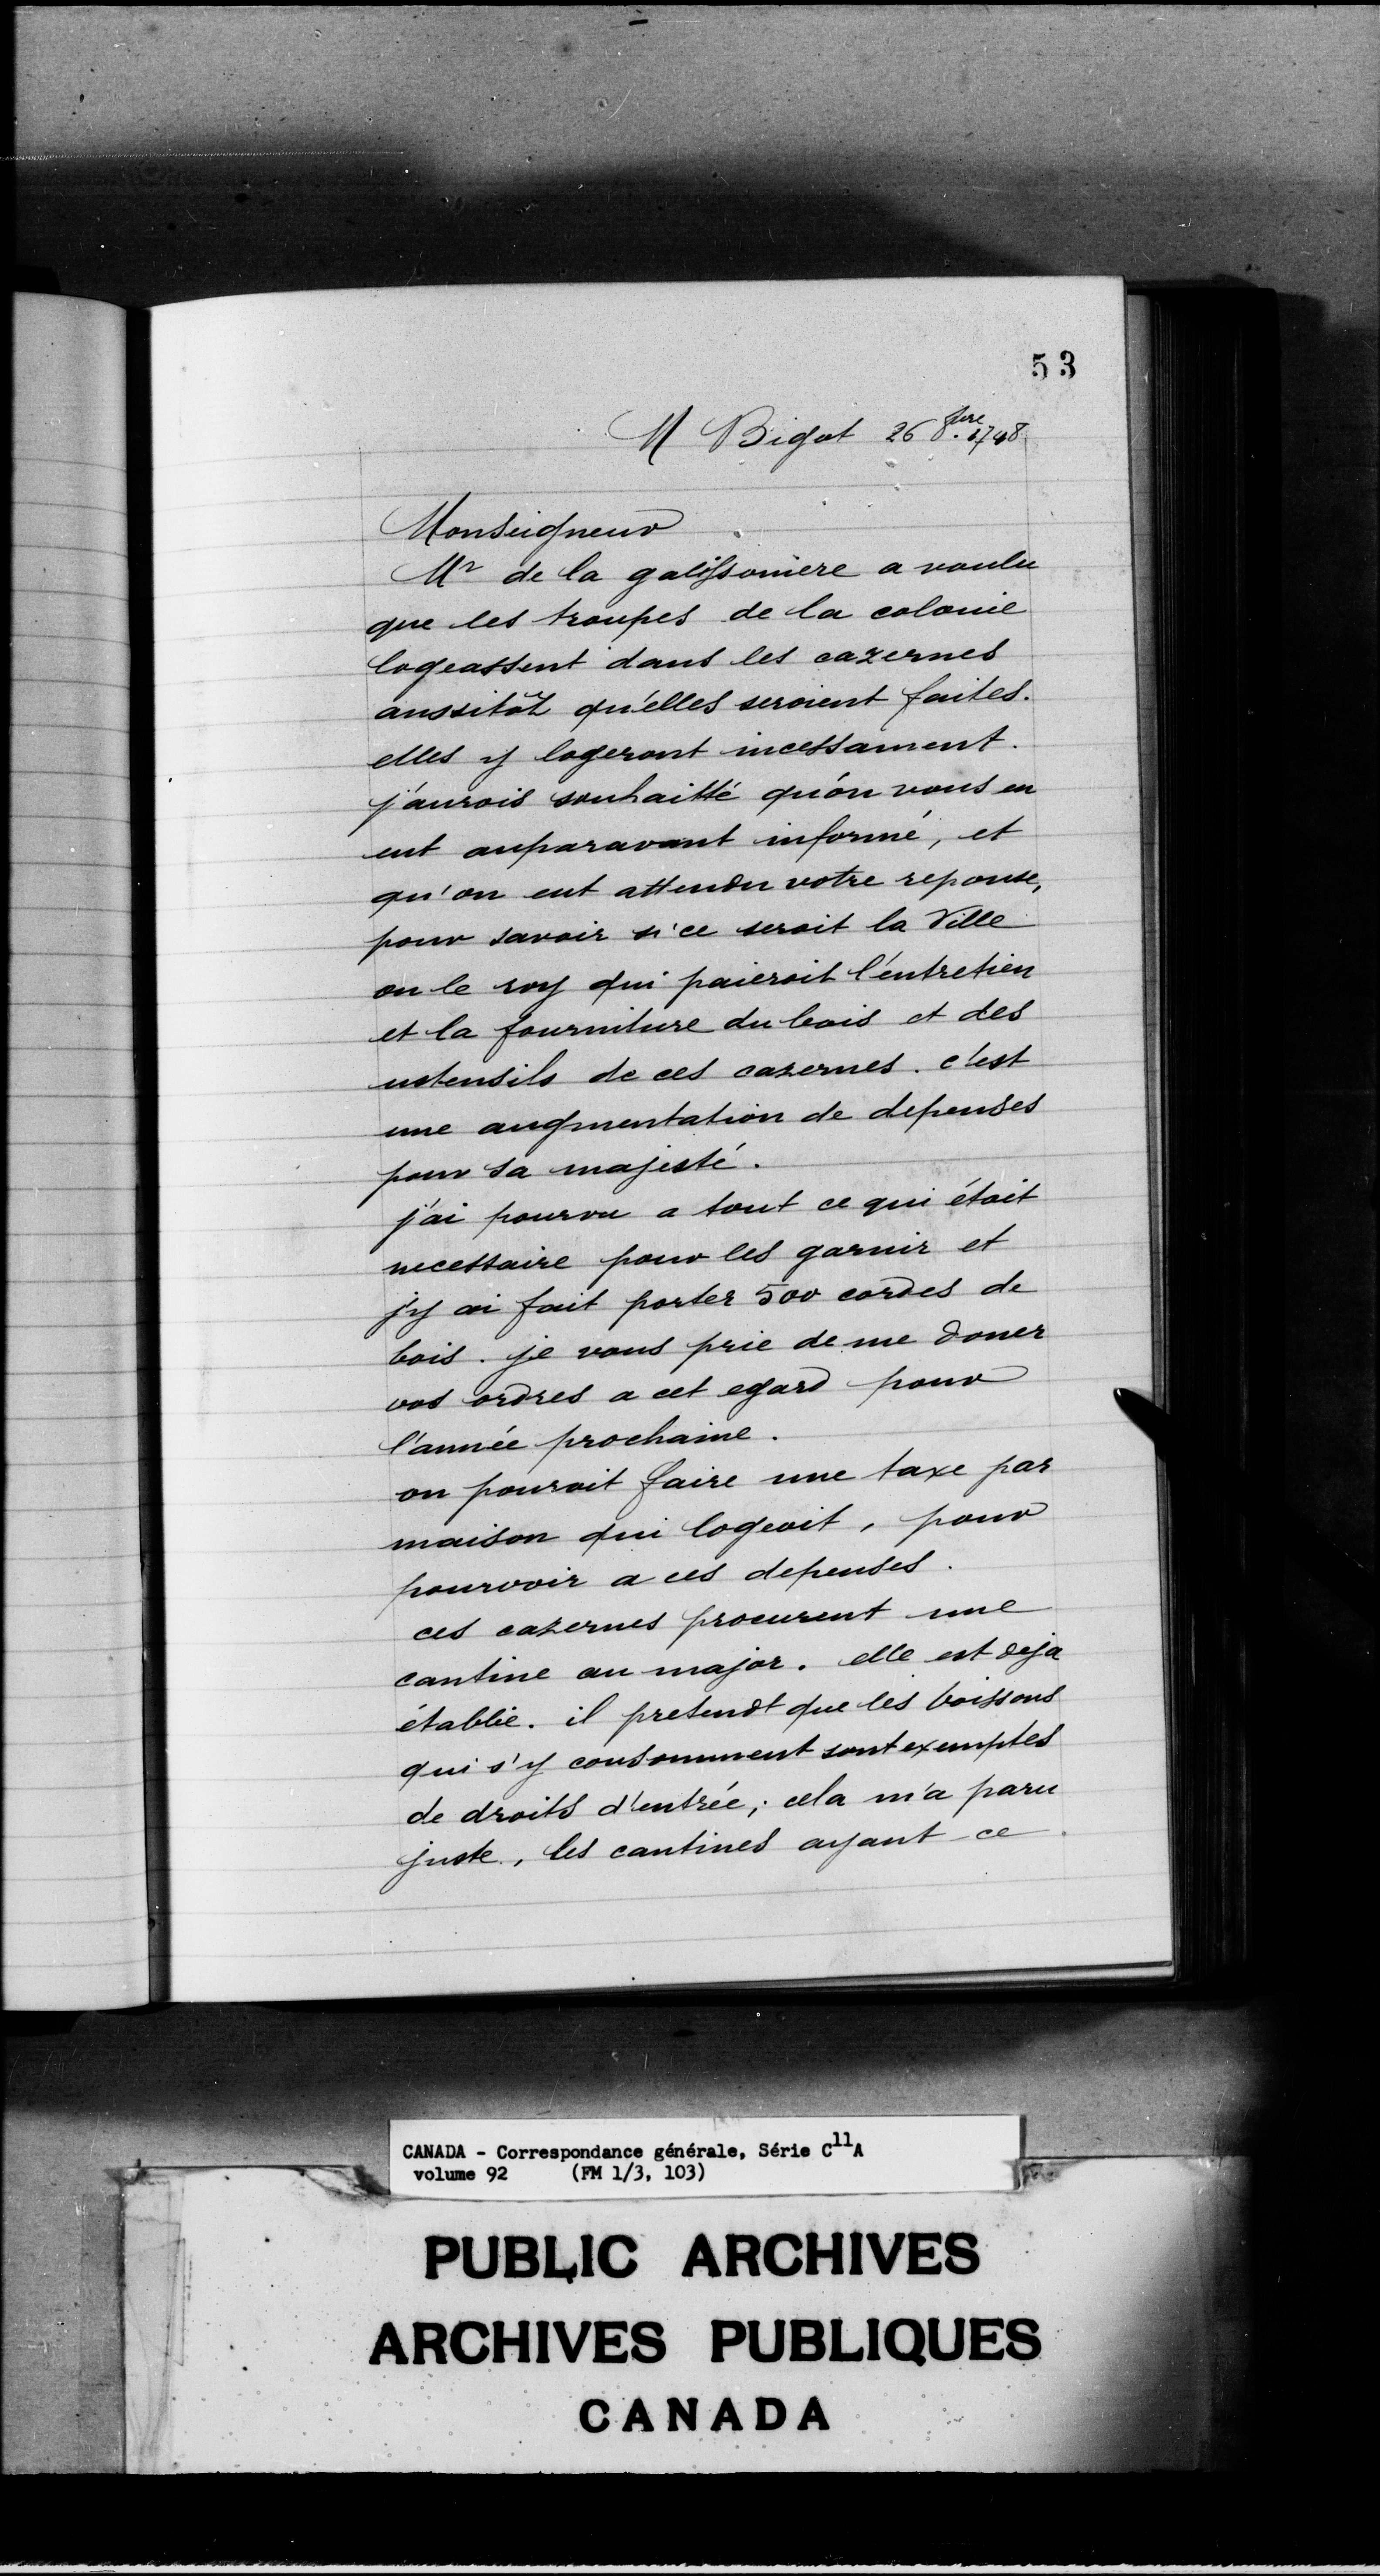 53
M Bigot 26 8bre. 1748
Monseigneur
Mr de la galissoniere a voulu
que les troupes de la colonie
logeassent dans les cazernes
aussitôt qu'elles seroient faites.
elles y logeront incessament.
j'aurois souhaitté qu'on vous en
eut auparavant informé, et
qu'on eut attendu votre reponse,
pour savoir si ce seroit la Ville
ou le roy qui paieroit l'entretien
et la fourniture du bois et des
ustensils de ces cazernes. c'est
une augmentation de depenses
pour sa majesté.
j'ai pourvu a tout ce qui étoit
necessaire pour les garnir et
j'y ai fait porter 500 cordes de
bois. je vous prie de me doner
vos ordres a cet egard pour
l'année prochaine.
on pouroit faire une taxe par
maison qui logeoit, pour
pourvoir a ces depenses.
ces cazernes procurent une
cantine au major. elle est deja
établie. il pretendt que les boissons
qui s'y consomment sont exemptes
de droits d'entrée; cela m'a paru
juste, les cantines ayant ce
CANADA - Correspondance générale, Série C11A
volume 92 (FM 1/3, 103)
PUBLIC ARCHIVES
ARCHIVES PUBLIQUES
CANADA